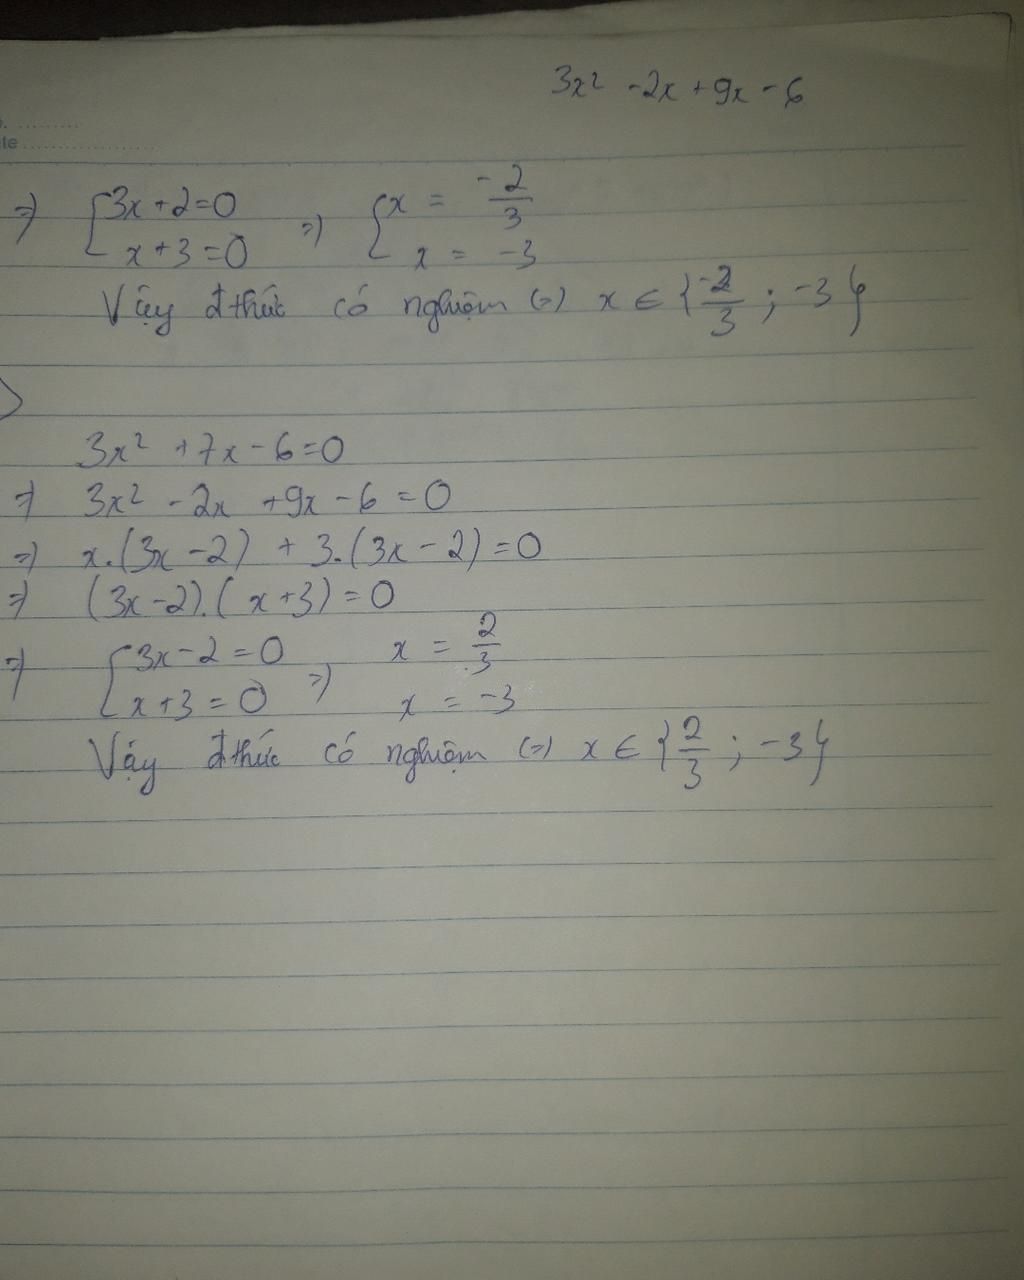 3x² - 2x + 9x - 6
=> [3x + 2 = 0 => [x = -2/3
x + 3 = 0 x = -3
Vậy đthức có nghiệm (=) x ∈ {-2/3 ; -3}
3x² + 7x - 6 = 0
=> 3x² - 2x + 9x - 6 = 0
=> x.(3x - 2) + 3.(3x - 2) = 0
=> (3x - 2).(x + 3) = 0
=> [3x - 2 = 0 => x = 2/3
x + 3 = 0 x = -3
Vậy đthức có nghiệm (=) x ∈ {2/3 ; -3}